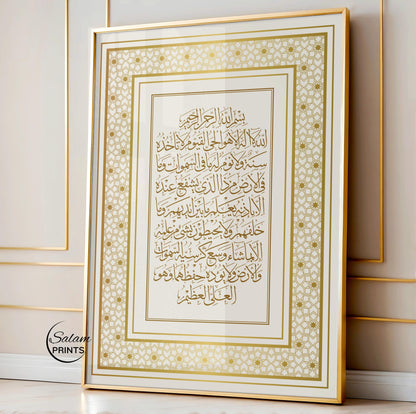 بسم الله الرحمن الرحيم
الله لا إله إلا هو الحي القيوم لا تأخذه
سنة ولا نوم له ما في السموات وما
في الأرض من ذا الذي يشفع عنده
إلا بإذنه يعلم ما بين أيديهم وما
خلفهم ولا يحيطون بشيء من علمه
إلا بما شاء وسع كرسيه السموات
والأرض ولا يؤده حفظهما وهو
العلي العظيم
Salam
PRINTS